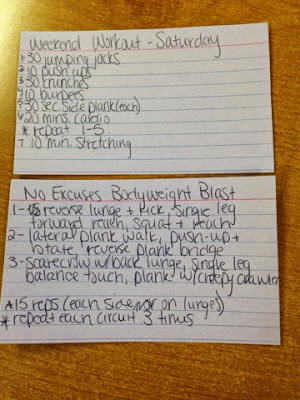 Weekend Workout - Saturday
1 30 jumping jacks
2 10 push ups
3 30 crunches
4 10 burpees
5 30 sec. side plank (each)
6 20 mins. cardio
* repeat 1-5
7. 10 min. stretching
No Excuses Bodyweight Blast
1- reverse lunge + kick, single leg
forward reach, squat + reach
2- lateral plank walk, push-up +
rotate, reverse plank bridge
3- scarecrow w/back lunge, single leg
balance touch, plank w/creepy crawler
*15 reps (each side on lunges)
* repeat each circuit 3 times